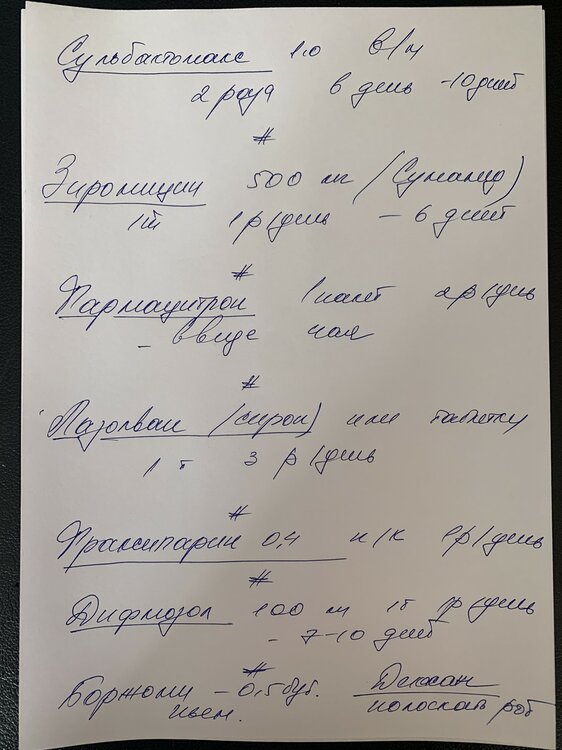 Сульбактомакс 1.0 в/м
2 раза в день - 10 дней
#
Зиромицин 500 мг (Сумамед)
1т 1р/день - 6 дней
#
Фармацитрон 1 пакет 2р/день
- ввиде чая
#
Лазолван (сироп) или таблетку
1 т 3 р/день
#
Фраксипарин 0,4 п/к 1р/день
#
Дифлюзол 100 м 1т 1р/день
- 7-10 дней
#
Боржоми - 0,5 бут. Декасан
полоскать рот